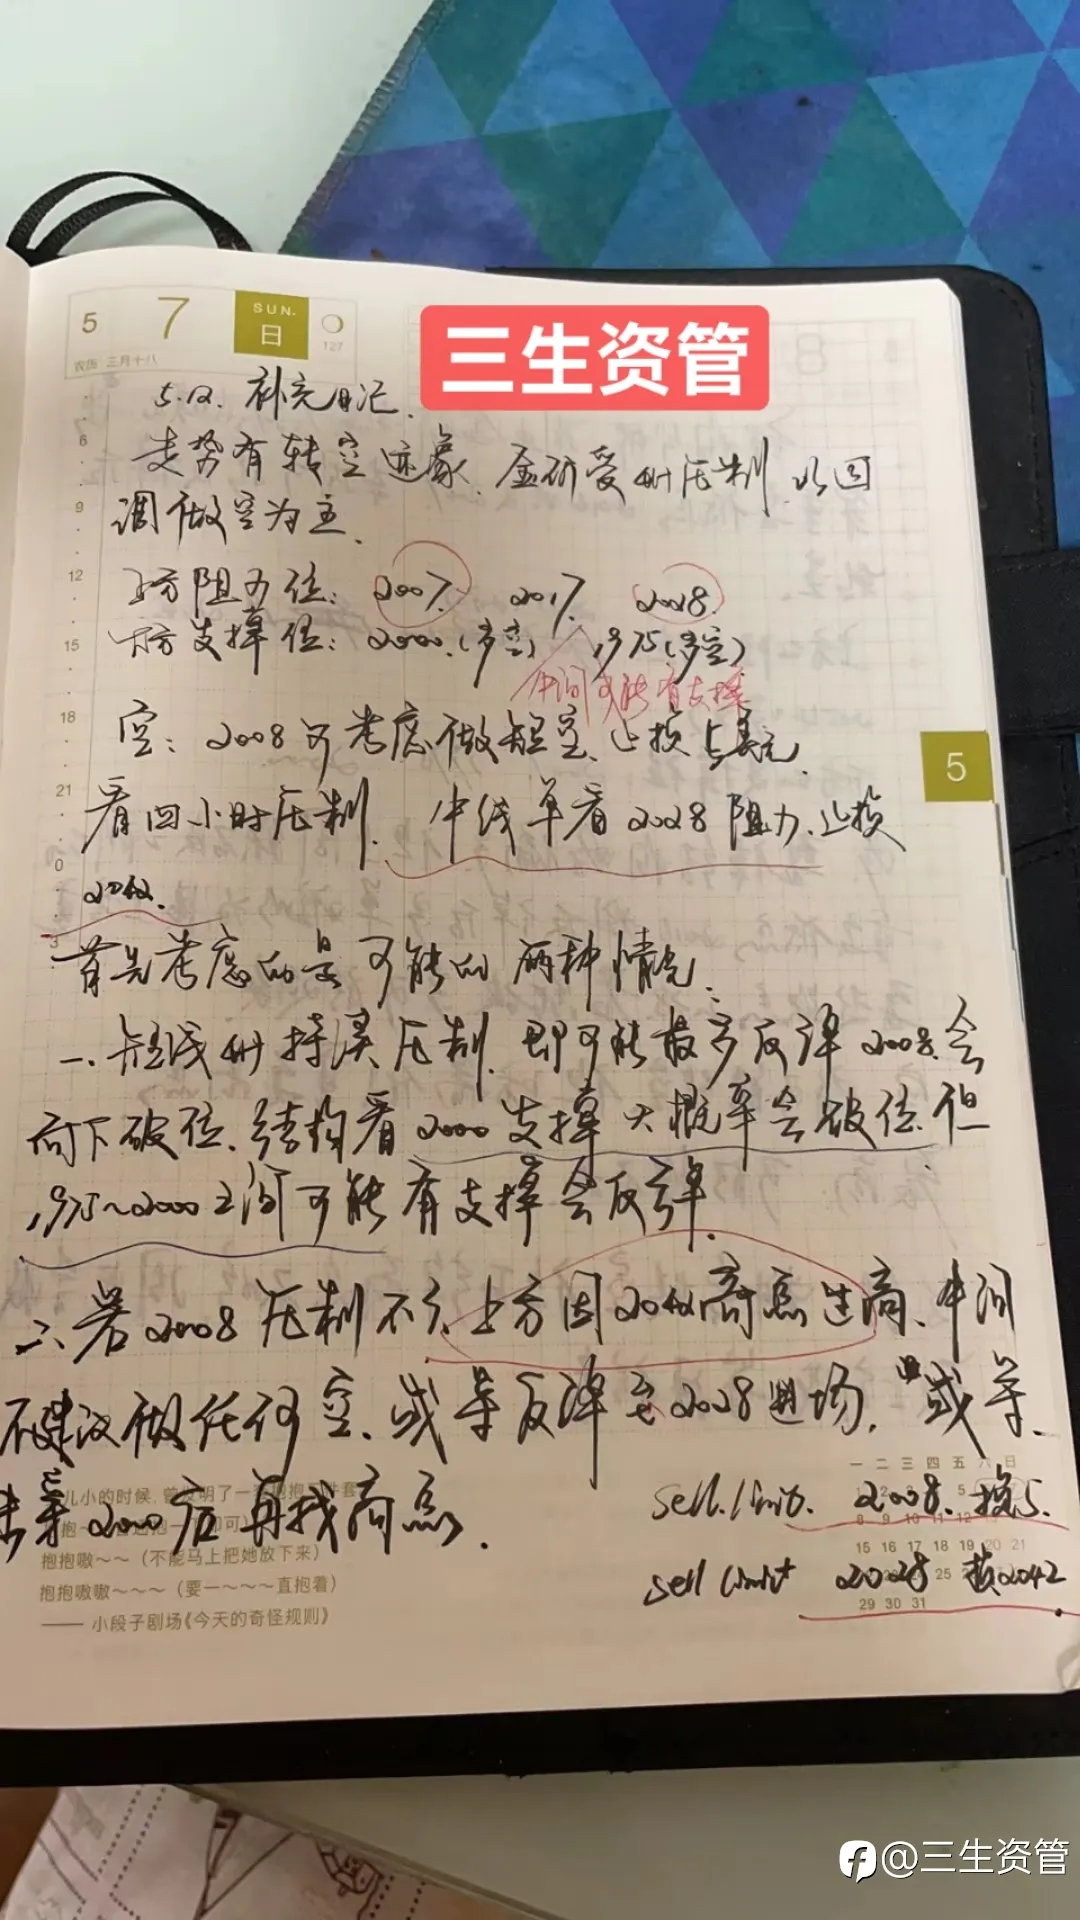 5 7 SUN. 日
127
农历 三月十八
三生资管
5.12. 补充日记.
走势有转空迹象. 压制. 以回
调做空为主.
上方阻力位: 2007. 2017. 2028.
下方支撑位: 2000.(多空) 1975(多空)
中间可能有支撑
空: 2008可考虑做短空、止损5美元.
看四小时压制. 中线单看2028阻力.止损
2042.
首先考虑的是可能的两种情况.
一.短线 持续压制. 即可能最多反弹2008.会
向下破位、结构看2000支撑大概率会破位.但
1975~2000之间可能有支撑会反弹.
二、若2008压制不了.上方因2042高点过高、中间
不建议做任何空、或等反弹至2028进场. 或等
2000后再找高点.
sell.limit. 2008. 损5.
sell limit 2028 损2042
儿小的时候,曾发明了一
抱抱嗷~~(不能马上把她放下来)
抱抱嗷嗷~~~(要一~~~直抱着)
—— 小段子剧场《今天的奇怪规则》
一 二 三 四 五 六 日
8 9 10 11 12
15 16 17 18 19 20 21
25
29 30 31
6
9
12
15
18
21
0
3
5
@三生资管